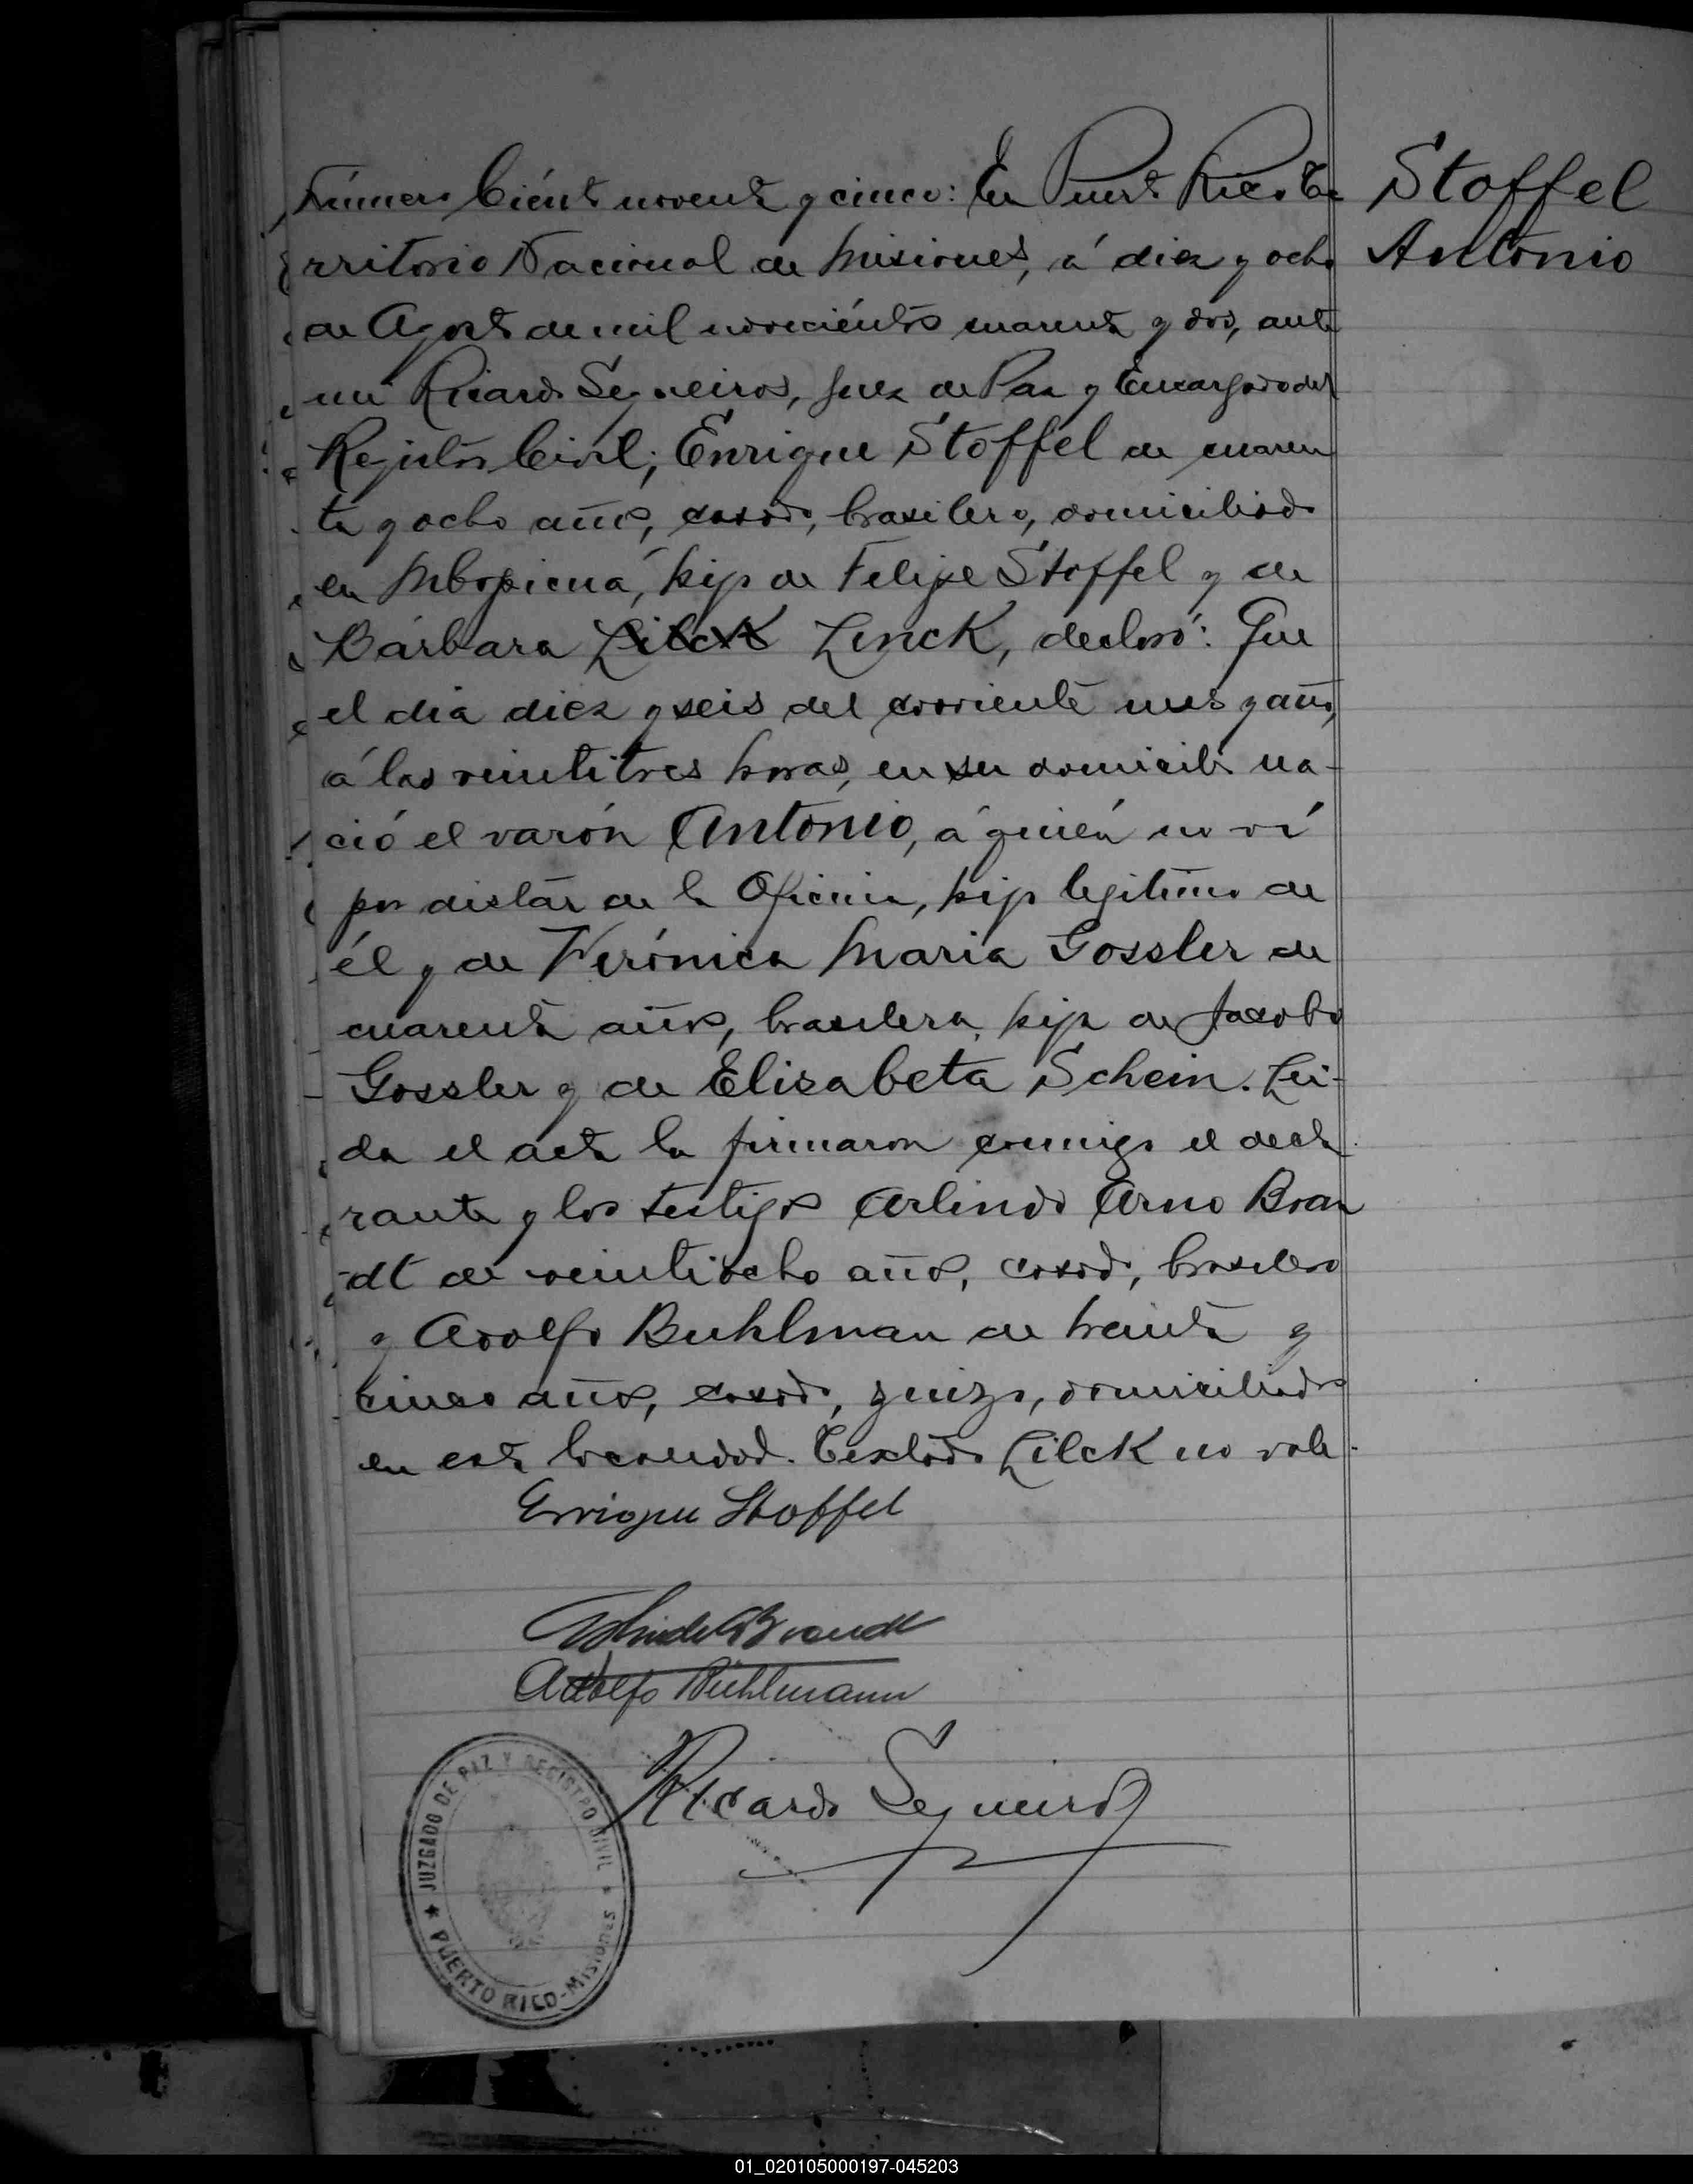 Número Ciénto noventa y cinco: En Puerto Rico Te
rritorio Nacional de Misiones, á diez y ocho
de Agosto de mil noveciéntos cuarenta y dos, ante
mi Ricardo Sequeiros, Juez de Paz y Encargado del
Registro Civil; Enrique Stoffel de cuaren
ta y ocho años, casado, brasilero, domiciliado
en Mbopicuá, hijo de Felipe Stoffel y de
Bárbara Lilck Linck, declaró: Que
el dia diez y seis del corriente mes y año,
á las veintitres horas, en su domicilio na-
ció el varón Antonio, á quién no ví
por distar de la Oficina, hijo legitimo de
él y de Verónica Maria Gossler de
cuarenta años, brasilera, hija de Jacobo
Gossler y de Elisabeta Schein. Lei-
da el acta la firmaron conmigo el decla
rante y los testigos Arlindo Arno Bran
-dt de veintiocho años, casado, brasilero
y Adolfo Buhlman de treinta y
cinco años, casado, zuizo, domiciliados
en esta localidad. Testado Lilck no vale.
Enrique Stoffel
Arlindo A Brandt
Adolfo Bühlmann
Ricardo Sequeiros
JUZGADO DE PAZ Y REGISTRO CIVIL
★ PUERTO RICO-MISIONES ★
Stoffel
Antonio
01_020105000197-045203